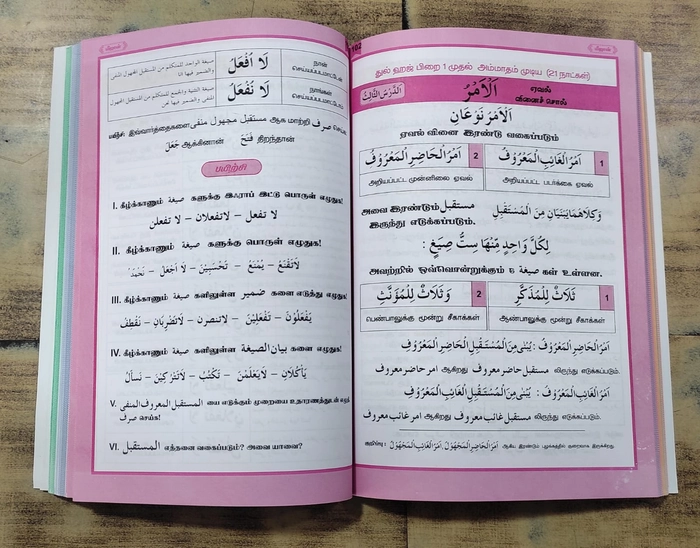 صيغة الواحد للمتكلم من المستقبل المجهول المنفي والضمير فيها انا
لَا اُفْعَلُ
நான் செய்யப்படமாட்டேன்
صيغة التثنية والجمع للمتكلم من المستقبل المجهول المنفي والضمير فيها نحن
لَا نُفْعَلُ
நாங்கள் செய்யப்படமாட்டோம்
இவ்வார்த்தைகளை مستقبل مجهول منفى ஆக மாற்றி صرف செய்
جَعَلَ ஆக்கினான் فَتَحَ திறந்தான்
பயிற்சி
I. கீழ்க்காணும் صيغة களுக்கு இஃராப் இட்டு பொருள் எழுதுக!
لا تفعل – لاتفعلان – لا تفعلن
II. கீழ்க்காணும் صيغة களுக்கு பொருள் எழுதுக!
لَاتَفْتَحُ – يُمْنَعُ – تُحْسَبِيْنَ – لَا اَجْعَلُ – نَحْمَدُ
III. கீழ்க்காணும் صيغة களிலுள்ள ضمير களை எடுத்து எழுதுக!
يَفْعَلُوْنَ – تَفْعَلِيْنَ – لاتنصرن – لَاتَضْرِبَانِ – نَقْطَفُ
IV. கீழ்க்காணும் صيغة களிலுள்ள بيان الصيغة களை எழுதுக!
يَأْكُلَانِ – لَايَعْلَمْنَ – تَكْتُبُ – لَاتَتْرُكِيْنَ – نَسأَلُ
V. المستقبل المعروف المنفى யை எடுக்கும் முறையை உதாரணத்துடன் எழுதி
صرف செய்க!
VI. المستقبل எத்தனை வகைப்படும்? அவை யாவை?
102
துல் ஹஜ் பிறை 1 முதல் அம்மாதம் முடிய (21 நாட்கள்)
اَلدَّرْسُ الثَّالِثُ
اَلْاَمْرُ
ஏவல் வினைச் சொல்
اَلْاَمْرُ نَوْعَانِ
ஏவல் வினை இரண்டு வகைப்படும்
2 اَمْرُ الْحَاضِرِ الْمَعْرُوْفُ
1 اَمْرُ الْغَائِبِ الْمَعْرُوْفُ
அறியப்பட்ட முன்னிலை ஏவல்
அறியப்பட்ட படர்க்கை ஏவல்
அவை இரண்டும் مستقبل இருந்து எடுக்கப்படும்.
وَكِلَاهُمَا يَبْنِيَانِ مِنَ الْمُسْتَقْبِلِ
لِكُلِّ وَاحِدٍ مِنْهَا سِتُّ صِيَغٍ :
அவற்றில் ஒவ்வொன்றுக்கும் 6 صيغة கள் உள்ளன.
2 وَ ثَلَاثٌ لِلْمُؤَنَّثِ
1 ثَلَاثٌ لِلْمُذَكَّرِ
பெண்பாலுக்கு மூன்று சீகாக்கள்
ஆண்பாலுக்கு மூன்று சீகாக்கள்
اَمْرُ الْحَاضِرِ الْمَعْرُوْفُ : يُبْنٰى مِنَ الْمُسْتَقْبِلِ الْحَاضِرِ الْمَعْرُوْفِ
امر حاضر معروف ஆகிறது مستقبل حاضر معروف லிருந்து எடுக்கப்படும்.
اَمْرُ الْغَائِبِ الْمَعْرُوْفُ : يُبْنٰى مِنَ الْمُسْتَقْبِلِ الْغَائِبِ الْمَعْرُوْفِ
امر غائب معروف ஆகிறது مستقبل غائب معروف லிருந்து எடுக்கப்படும்.
குறிப்பு : اَمْرُ الْحَاضِرِ الْمَجْهُوْلُ، اَمْرُ الْغَائِبِ الْمَجْهُوْلُ ஆகிய இரண்டும் புழக்கத்தில் குறைவாக இருக்கிறது.